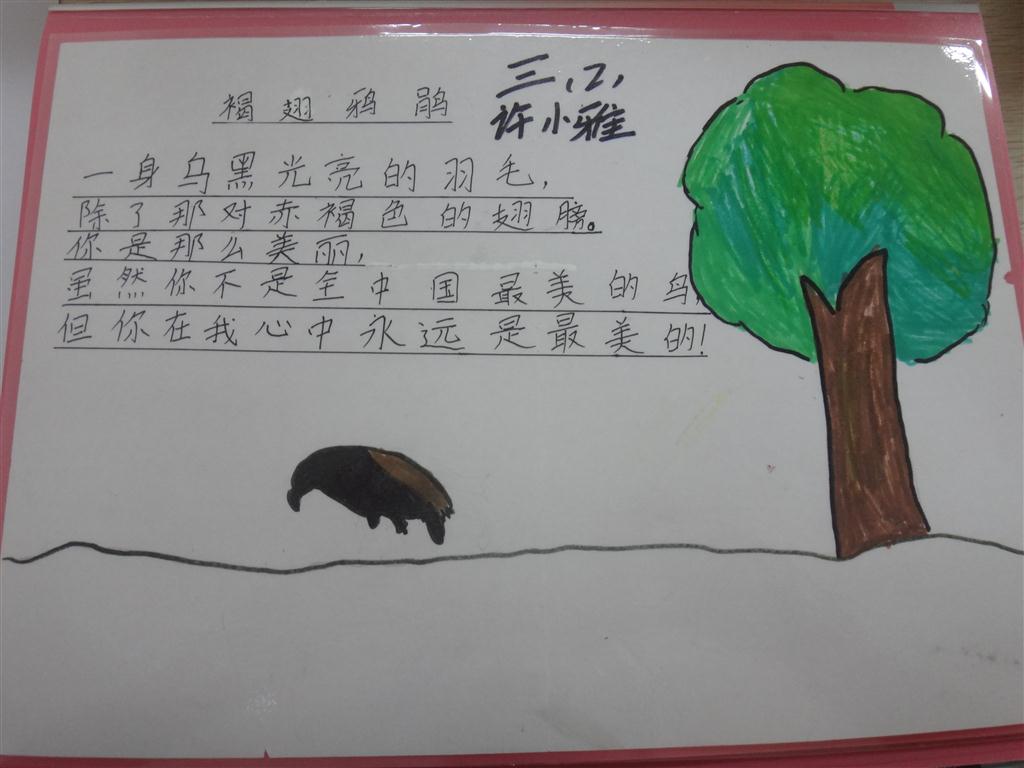 褐翅鸦鹃
三,(2),
许小雅
一身乌黑光亮的羽毛,
除了那对赤褐色的翅膀。
你是那么美丽,
虽然你不是全中国最美的鸟,
但你在我心中永远是最美的!